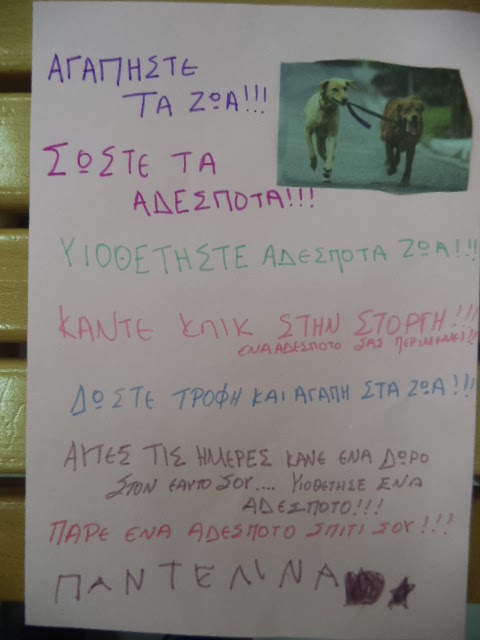 ΑΓΑΠΗΣΤΕ
ΤΑ ΖΩΑ!!!
ΣΩΣΤΕ ΤΑ
ΑΔΕΣΠΟΤΑ!!!
ΥΙΟΘΕΤΗΣΤΕ ΑΔΕΣΠΟΤΑ ΖΩΑ!!!
ΚΑΝΤΕ ΚΛΙΚ ΣΤΗΝ ΣΤΟΡΓΗ!!!
ΕΝΑ ΑΔΕΣΠΟΤΟ ΣΑΣ ΠΕΡΙΜΕΝΕΙ!!!
ΔΩΣΤΕ ΤΡΟΦΗ ΚΑΙ ΑΓΑΠΗ ΣΤΑ ΖΩΑ!!!
ΑΥΤΕΣ ΤΙΣ ΗΜΕΡΕΣ ΚΑΝΕ ΕΝΑ ΔΩΡΟ
ΣΤΟΝ ΕΑΥΤΟ ΣΟΥ.... ΥΙΟΘΕΤΗΣΕ ΕΝΑ
ΑΔΕΣΠΟΤΟ!!!
ΠΑΡΕ ΕΝΑ ΑΔΕΣΠΟΤΟ ΣΠΙΤΙ ΣΟΥ!!!
ΠΑΝΤΕΛΙΝΑ